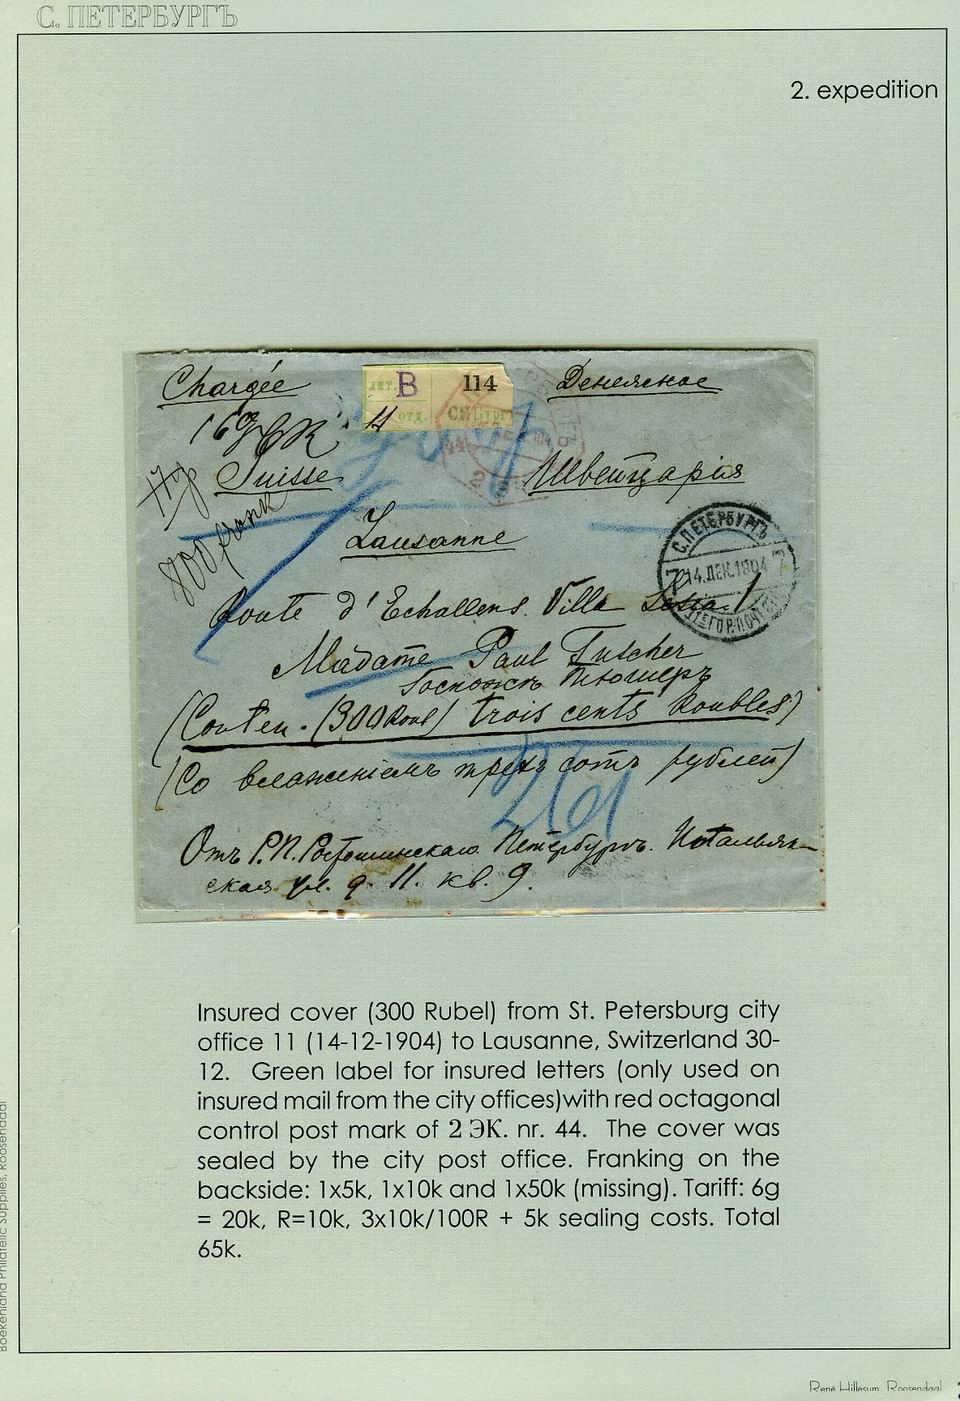 С. ПЕТЕРБУРГЪ
2. expedition
Chargée
лит. В 114
11 отд. СПБургъ
Денежное
Suisse
Швейцарія
800 frank
Lausanne
С.ПЕТЕРБУРГЪ
14.ДЕК.1904
Route d'Echallens. Villa
Madame Paul Tuscher
Госпожѣ Тюшеръ
(Conten. (300 Roub) trois cents Roubles)
(Со вложеніемъ трехъ сотъ рублей)
261
Отъ Р.П. Петербургъ. Итальян-
ская ул. д. 11. кв. 9.
Insured cover (300 Rubel) from St. Petersburg city
office 11 (14-12-1904) to Lausanne, Switzerland 30-
12. Green label for insured letters (only used on
insured mail from the city offices)with red octagonal
control post mark of 2 ЭК. nr. 44. The cover was
sealed by the city post office. Franking on the
backside: 1x5k, 1x10k and 1x50k (missing). Tariff: 6g
= 20k, R=10k, 3x10k/100R + 5k sealing costs. Total
65k.
Boekenland Philatelic Supplies, Roosendaal
René Hillesum, Roosendaal